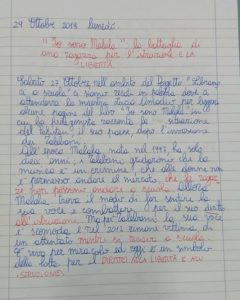 29 Ottobre 2018 lunedì
"Io sono Malala": la battaglia di
una ragazza per l'istruzione E LA
LIBERTÀ
Sabato 27 Ottobre nell'ambito del Progetto "Libriamo
ci a scuola" ci siamo recati in palestra dove ci
attendeva la maestra per leggere
alcune pagine del libro "Io sono Malala" in
cui la ragazza racconta la situazione
del Pakistan, il suo paese, dopo l'invasione
dei Talebani.
All'epoca Malala, nata nel 1997, ha solo
dieci anni; i talebani gridarono che la
musica è un crimine, che alle donne non
è permesso andare al mercato, che le ragaz
ze non possono andare a scuola. Allora
Malala trova il modo di far sentire la
sua voce e combattere per il suo diritto
all'istruzione. Ma per i talebani la sua voce
è scomoda e nel 2012 rimane vittima di
un attentato mentre va a scuola.
È viva per miracolo ed oggi è un simbolo
della lotta per il DIRITTO ALLA LIBERTÀ E ALL'
ISTRUZIONE.